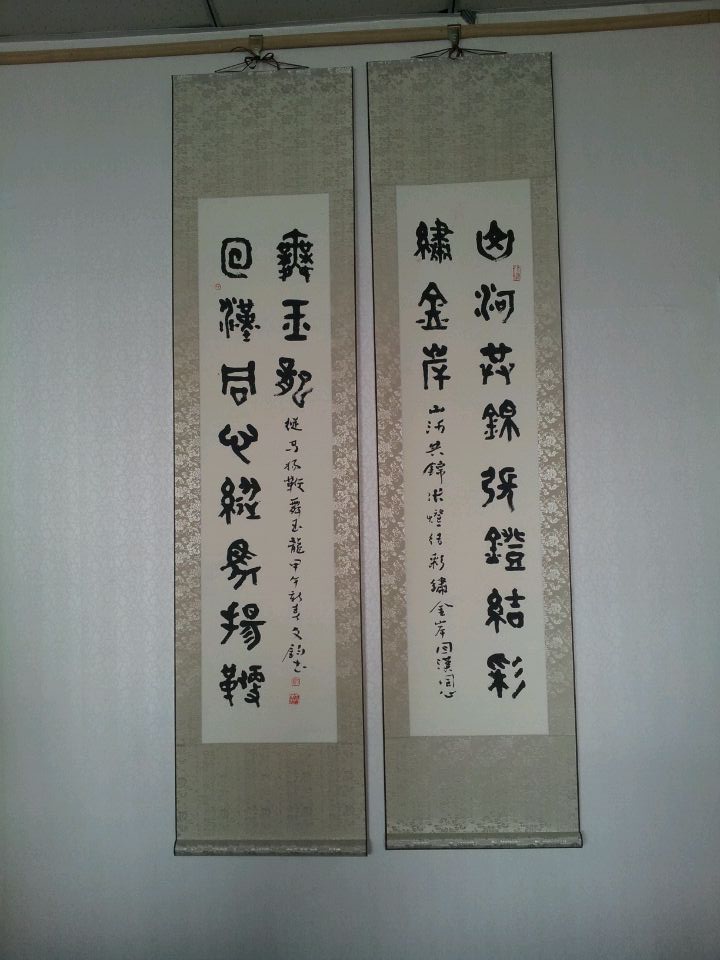 山河共錦張鐙結彩
繡金岸
山河共錦張燈结彩繡金岸回漢同心
回漢同心縱馬揚鞭
舞玉龍
縱马揚鞭舞玉龍甲午新春文鈞书